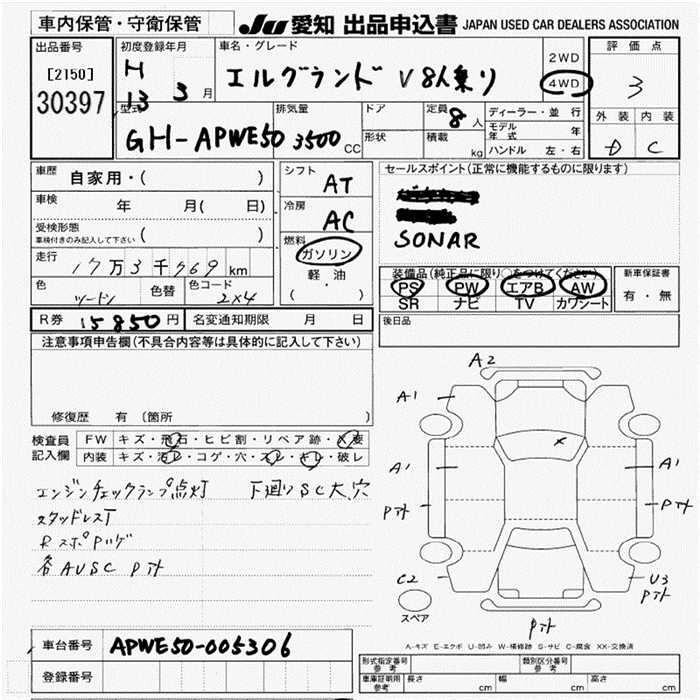 車内保管・守衛保管 JU 愛知 出品申込書 JAPAN USED CAR DEALERS ASSOCIATION
出品番号 初度登録年月 車名・グレード 2WD 評価点
[2150] H 13 3月 エルグランド V 8人乗り 4WD 3
30397 型式 排気量 ドア 定員 8人 ディーラー・並行 外装 内装
GH-APWE50 3500CC 形状 積載 kg モデル年式 年 D C
ハンドル 左・右
車歴 自家用・( ) シフト AT セールスポイント(正常に機能するものに限ります)
車検 年 月( 日) 冷房 AC
受検形態 車検付きのみ記入して下さい ( ) SONAR
走行 17万3千969km 燃料 ガソリン 装備品(純正品に限り○をつけてください) 新車保証書
色 ツートン 色替 色コード 2×4 軽・油 ( ) PS・PW・エアB・AW 有・無
SR ナビ TV カワシート
R券 15850円 名変通知期限 月 日 後日品
注意事項申告欄(不具合内容等は具体的に記入して下さい)
修復歴 有(箇所 )
検査員記入欄 FW キズ・飛石・ヒビ割・リペア跡・X要
内装 キズ・汚レ・コゲ・穴・スレ・キレ・破レ
エンジンチェックランプ点灯 下廻りSC大、穴
スタッドレスT
各AUSC
A2
A1
A1 A1
C2 U3
スペア
A-キズ E-エクボ U-凹み W-補修跡 S-サビ C-腐食 XX-交換済
車台番号 APWE50-005306
登録番号
形式指定番号 参考 類別区分番号 参考
車庫証明用 参考 長さ cm 幅 cm 高さ cm